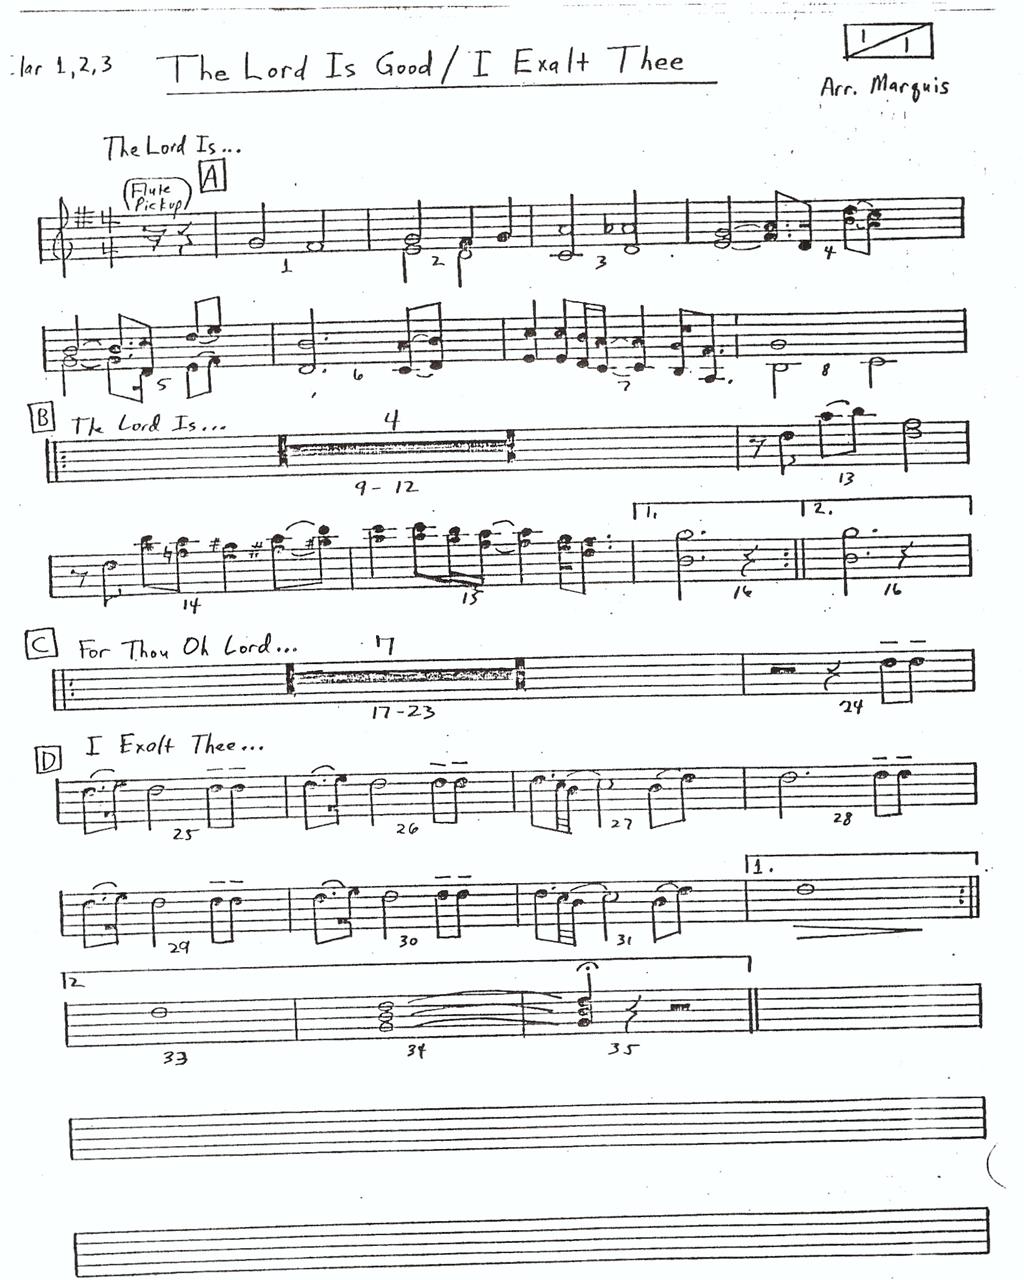 lar 1,2,3
The Lord Is Good / I Exalt Thee
1/1
Arr. Marquis
The Lord Is...
(Flute Pickup)
A
4
4
1
2
3
4
5
6
7
8
B
The Lord Is...
4
9-12
13
1.
2.
14
15
16
16
C
For Thou Oh Lord...
7
17-23
24
D
I Exolt Thee...
25
26
27
28
1.
29
30
31
2
33
34
35